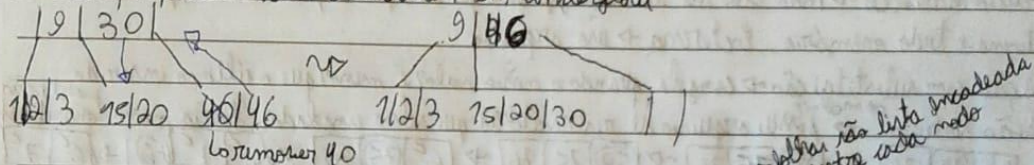 |9|30| 9|46
1|2|3 15|20 40|46 1|2|3 15|20|30 | |
↳ remover 40
folhas são lista encadeada
entre cada nodo